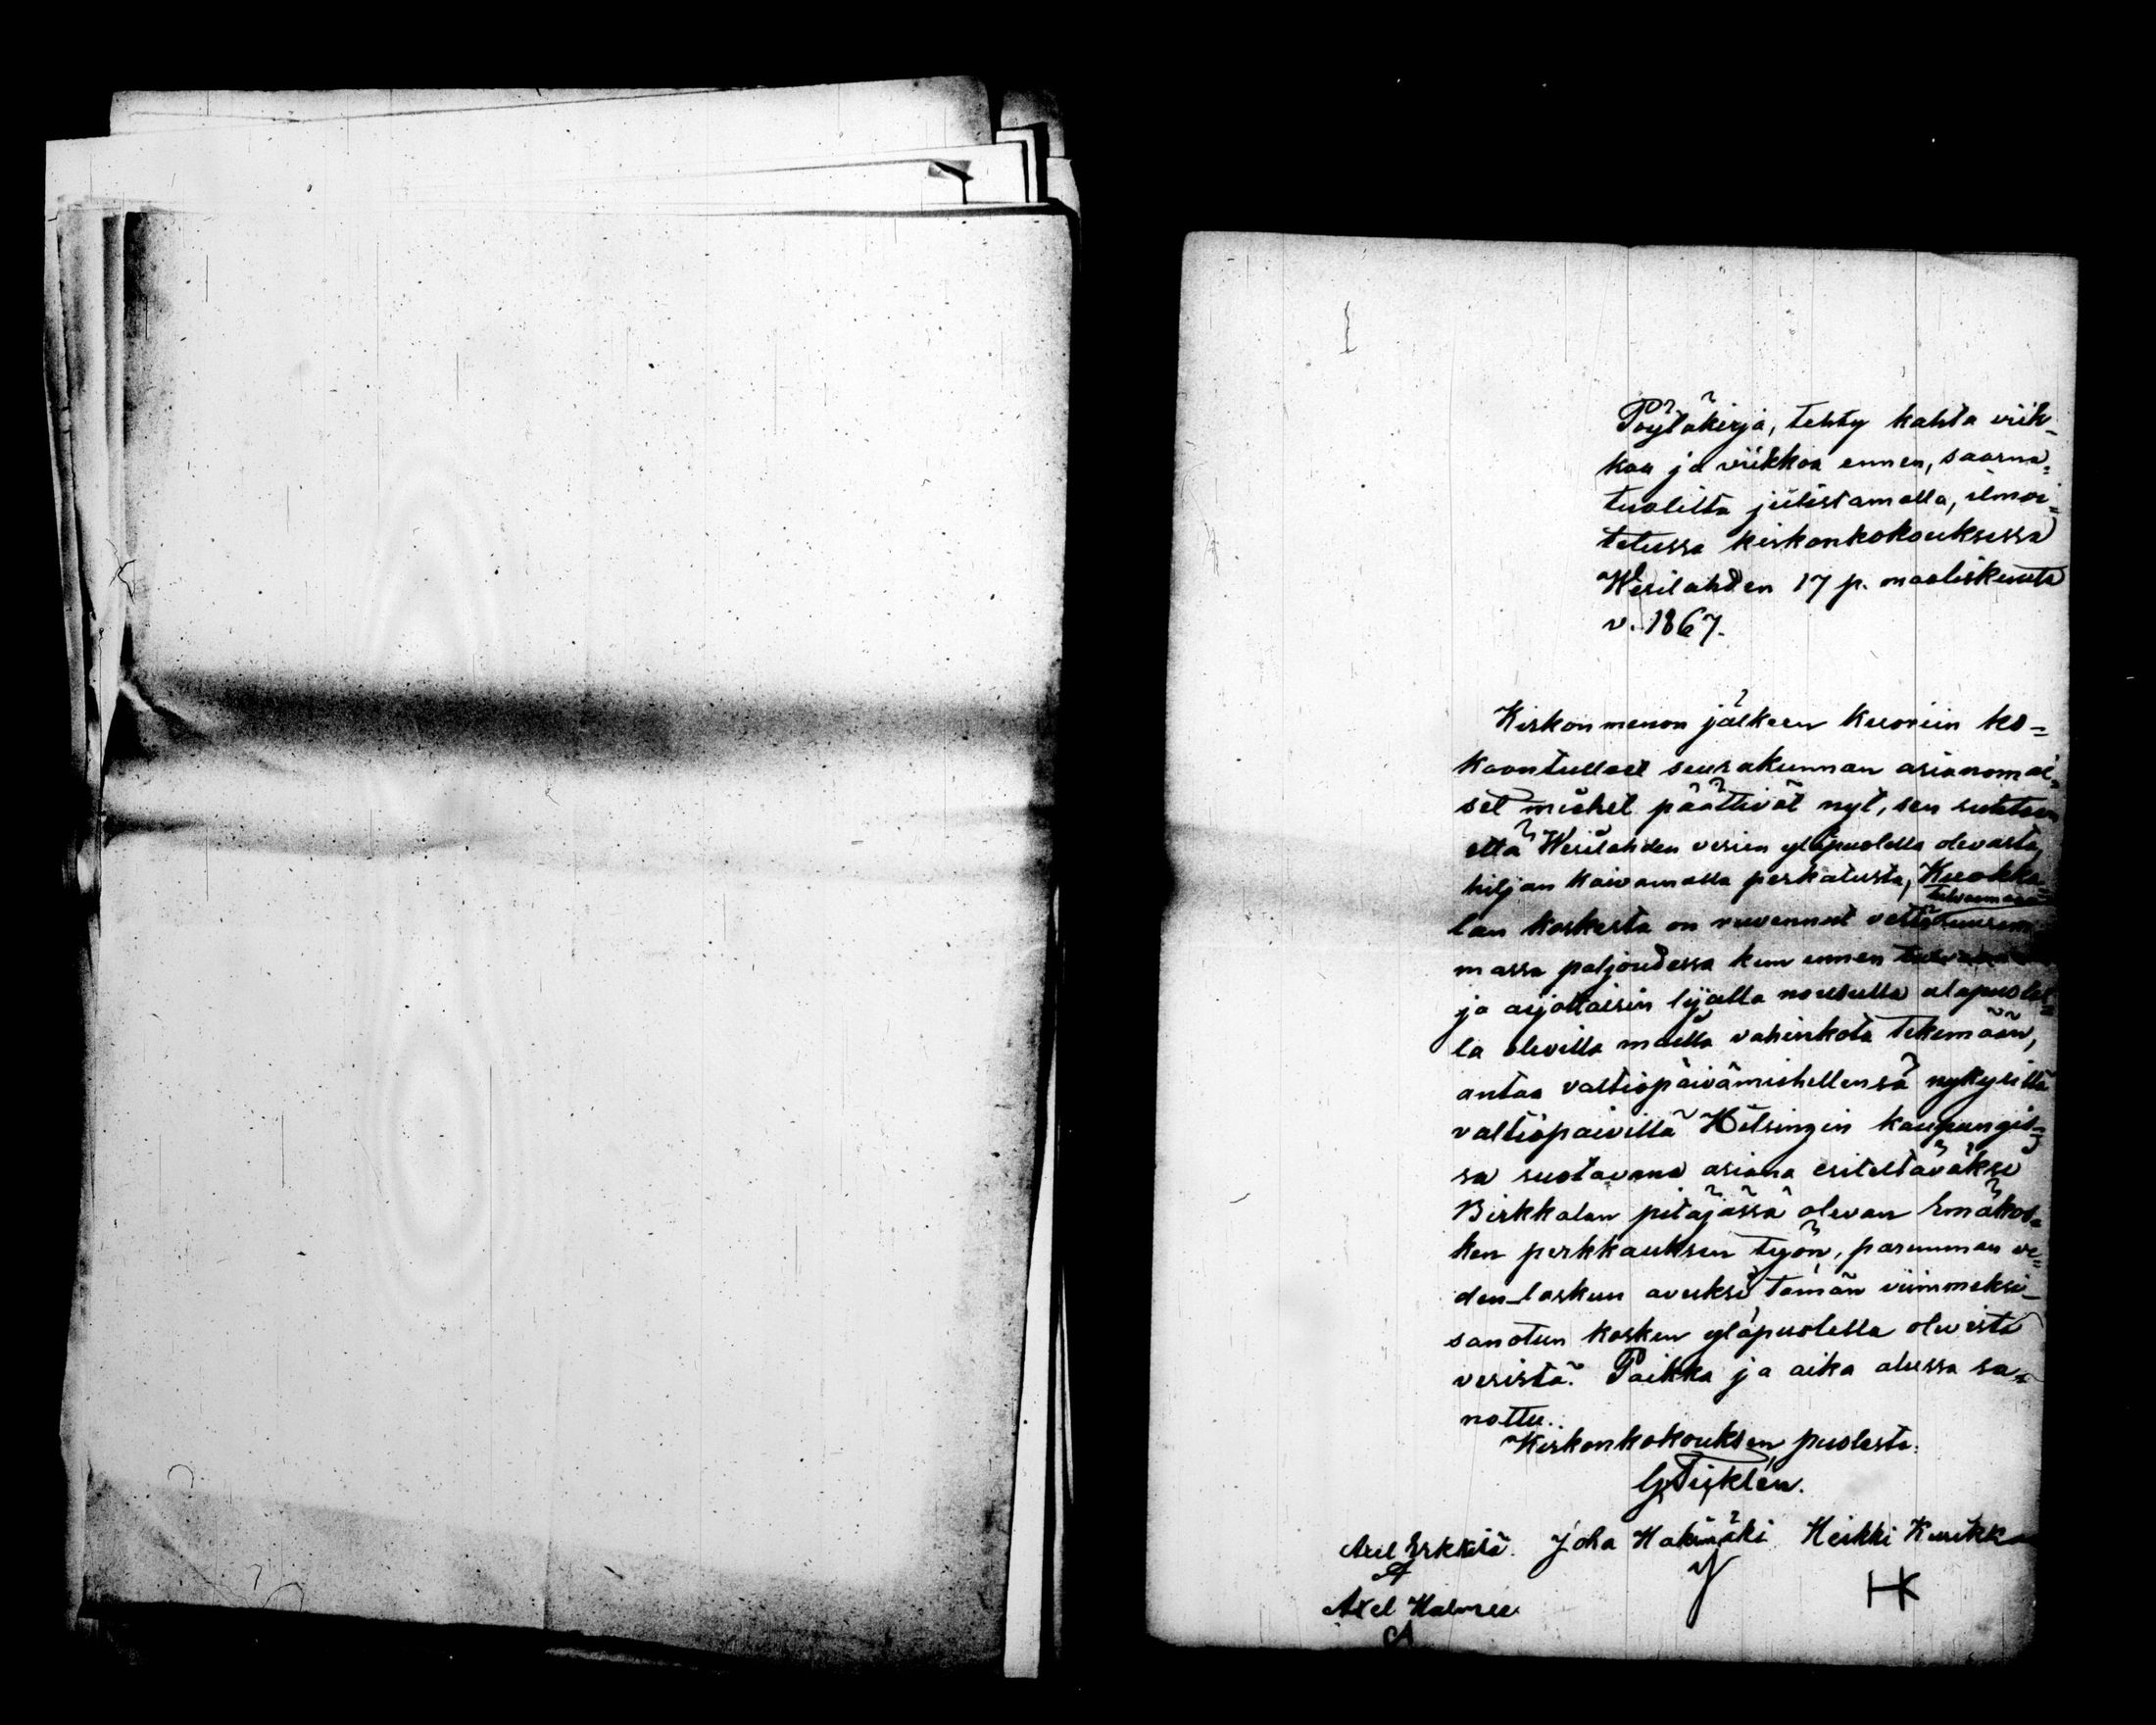 Pöytäkirja, tehty kahta viik-
koa ja viikkoa ennen, saarna=
tuolilta julistamalla, ilmoi=
tetussa kirkonkokouksessa
Wesilahden 17 p. maaliskuuta
v. 1867.
Kirkonmenon jälkeen kuoriin ko-
koontulleet seurakunnan asianomai=
set miehet päättivät nyt, sen suhteen
että Wesilahden vesien yläpuolella olevasta,
hiljan kaivamalla perkatusta, Kuokka=
lan koskesta on ruvennut vettä suurem
massa paljoudessa kun ennen
ja arjottaisin lijalla nousulla alapuolel=
la olevilla mailla vahinkota tekemään,
antaa valtiopäivämiehellensä nykysillä
valtiopäivillä Helsingin kaupungis=
sa suotavana asiana esiteltäväksi
Birkkalan pitäjässä olevan Emäkos=
ken perkkauksen työn, paremman ve=
den-laskun avuksi tämän viimmeksi-
sanotun kosken yläpuolella olevista
vesistä. Paikka ja aika alussa sa=
nottu.
Kirkonkokouksen puolesta:
G Ticklén.
Axel Erkkilä. Joha Hakimäki Heikki Kurikka
HK
Axel
A